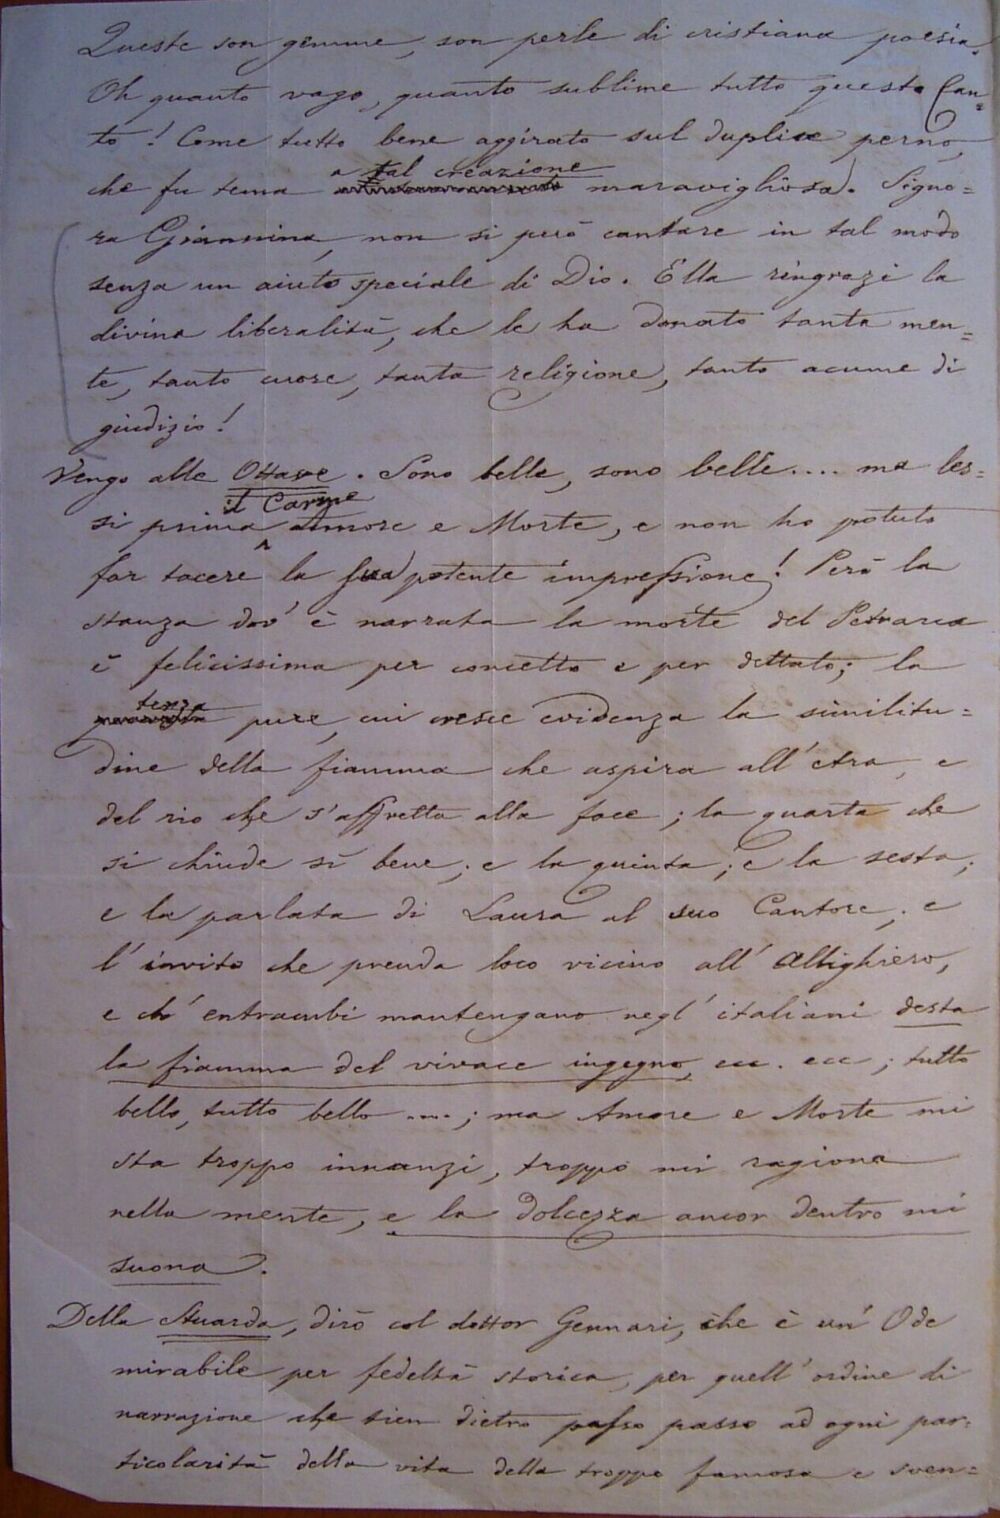 Queste son gemme, son perle di cristiana poesia.
Oh quanto vago, quanto sublime tutto questo Can=
to! Come tutto bene aggirato sul duplice perno,
a tal creazione
che fu tema maravigliosa. Signo=
ra Giannina, non si può cantare in tal modo
senza un aiuto speciale di Dio. Ella ringrazi la
divina liberalità, che le ha donato tanta men=
te, tanto cuore, tanta religione, tanto acume di
giudizio!
Vengo alle Ottave. Sono belle, sono belle.... ma les=
il Carme
si prima Amore e Morte, e non ho potuto
far tacere la sua potente impressione! Però la
stanza dov' è narrata la morte del Petrarca
è felicissima per concetto e per dettato; la
terza
pure, cui cresce evidenza la similitu=
dine della fiamma che aspira all' etra, e
del rio che s'affretta alla foce; la quarta che
si chiude sì bene; e la quinta; e la sesta;
e la parlata di Laura al suo Cantore; e
l' invito che prenda loco vicino all' Allighiero,
e ch' entrambi mantengano negl' italiani desta
la fiamma del vivace ingegno, ecc. ecc; tutto
bello, tutto bello ....; ma Amore e Morte mi
sta troppo innanzi, troppo mi ragiona
nella mente, e la dolcezza ancor dentro mi
suona.
Della Stuarda, dirò col dottor Gennari, che è un' Ode
mirabile per fedeltà storica, per quell' ordine di
narrazione che tien dietro passo passo ad ogni par=
ticolarità della vita della troppo famosa e sven=